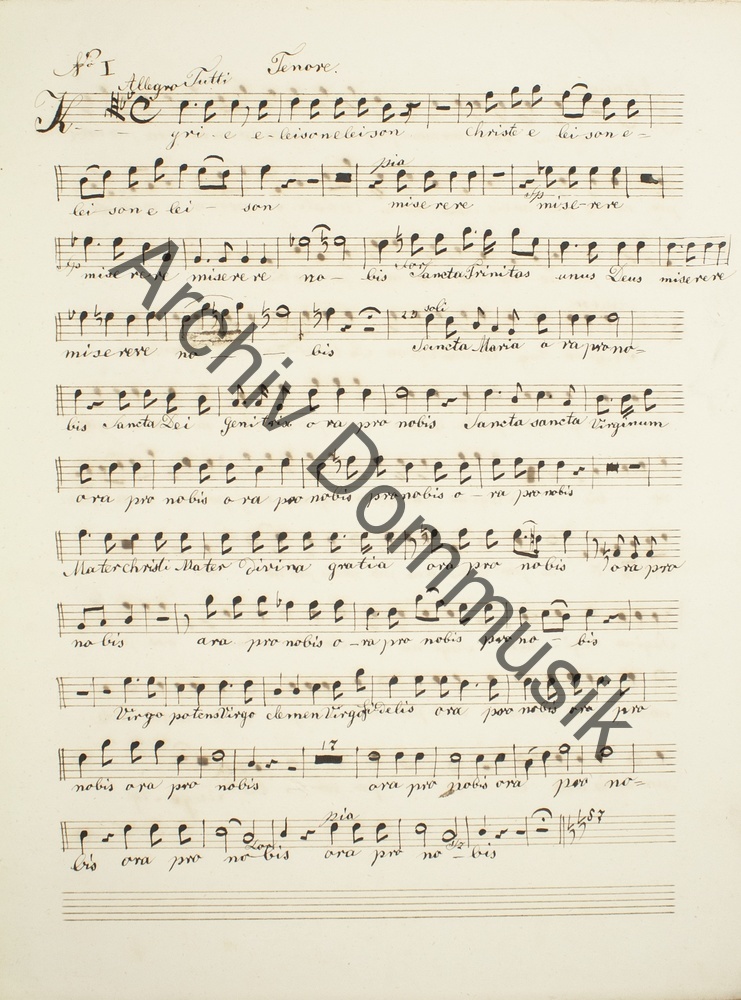 No I Tenore.
Allegro Tutti
K yri - e e - leison eleison Christe e leison e=
lei - son e lei - son pia miserere miserere
miserere miserere no - bis Sancta Trinitas unus Deus miserere
miserere no - bis soli Sancta Maria o ra pro no=
bis Sancta Dei Genitrix o ra pro nobis Sancta sancta Virginum
ora pro nobis o ra pro nobis pro nobis o - ra pro nobis
Mater Christi Mater divina gratia ora pro nobis ora pro
no bis ora pro nobis o - ra pro nobis pro no - bis
Virgo potens Virgo clemen Virgo fidelis ora pro nobis ora pro
nobis ora pro nobis 17 ora pro nobis ora pro no=
bis ora pro no bis pia ora pro no - bis 87
Archiv Dommusik